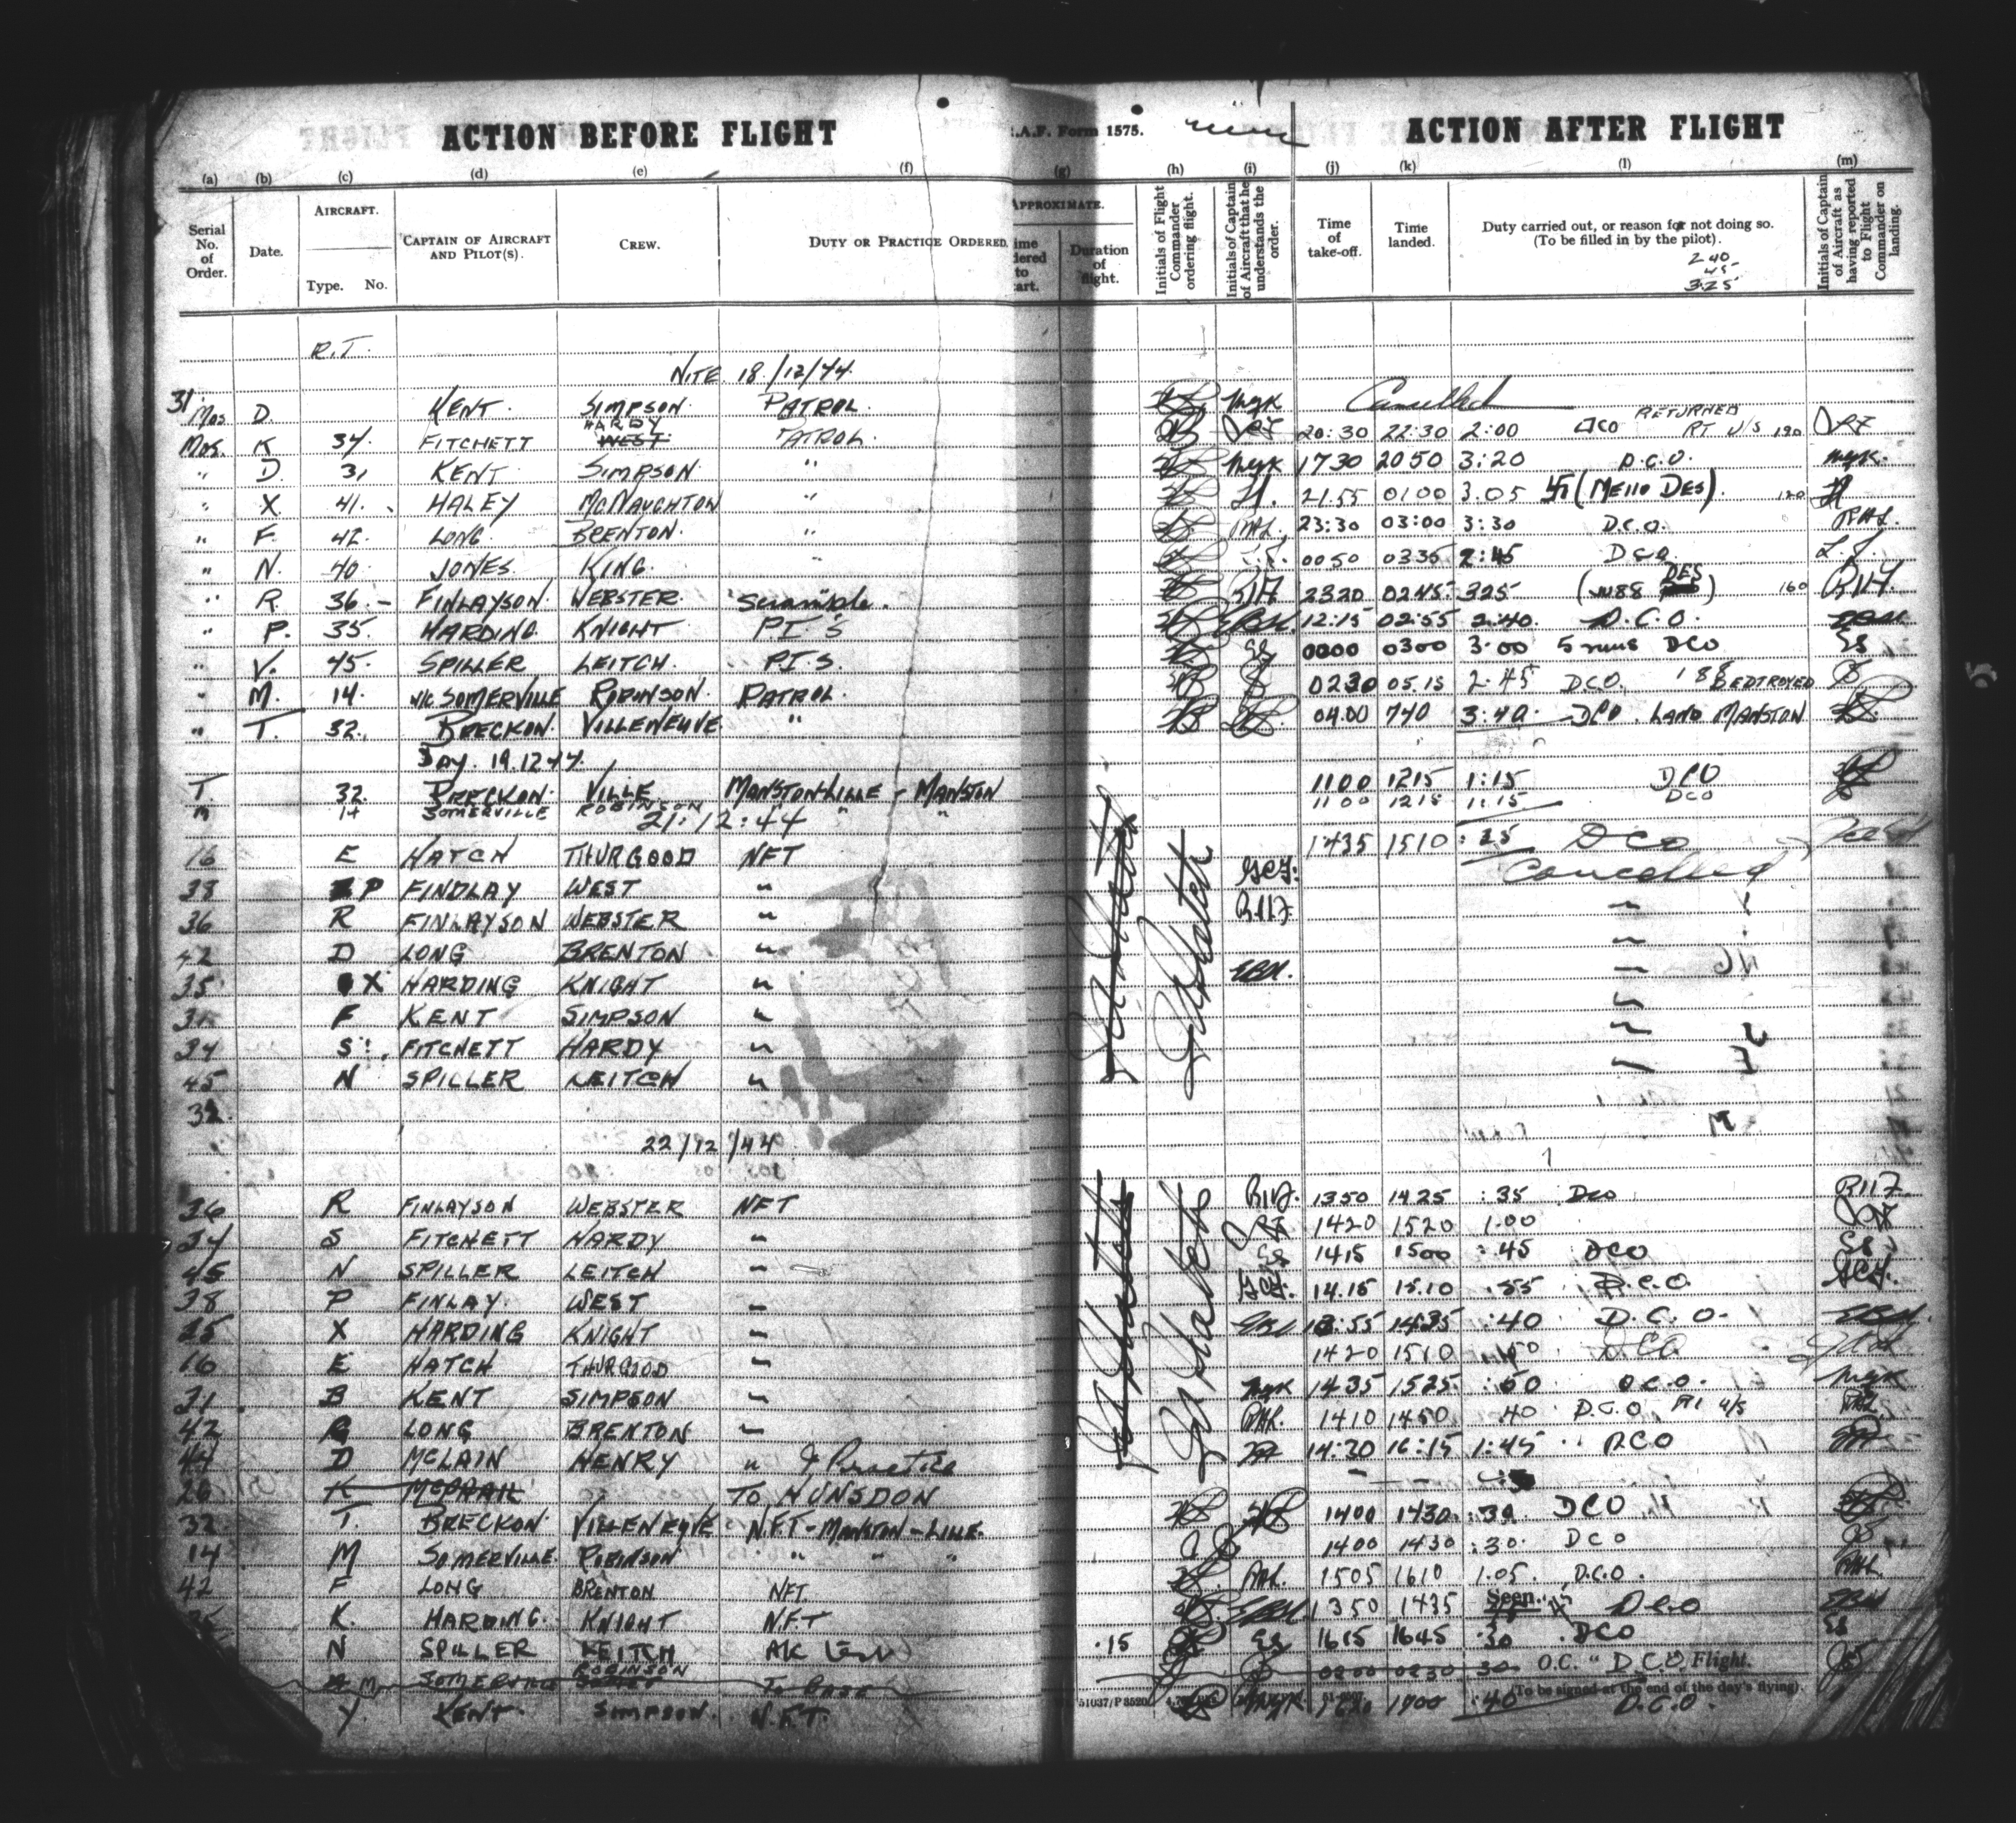 ACTION BEFORE FLIGHT R.A.F. Form 1575. ACTION AFTER FLIGHT
(a) (b) (c) (d) (e) (f) (g) (h) (i) (j) (k) (l) (m)
Serial No. of Order. Date. AIRCRAFT. Type. No. CAPTAIN OF AIRCRAFT AND PILOT(S). CREW. DUTY OR PRACTICE ORDERED. APPROXIMATE. Duration of flight. Initials of Flight Commander ordering flight. Initials of Captain of Aircraft that he understands the order. Time of take-off. Time landed. Duty carried out, or reason for not doing so. (To be filled in by the pilot). Initials of Captain of Aircraft as having reported to Flight Commander on landing.
2 40
45
3.25
R.T.
NITE 18/12/44
31 Mos D. KENT. SIMPSON PATROL. MGK Cancelled
Mos. K 34. FITCHETT HARDY WEST PATROL. 20:30 22:30 2:00 DCO RETURNED RT U/S 120
" D. 31 KENT SIMPSON " MGK 1730 2050 3:20 D.C.O. MGK.
" X. 41. HALEY MCNAUGHTON " H. 21.55 01:00 3.05 卐 (ME110 DES). 120 H
" F. 42. LONG. BRENTON. " RHL. 23:30 03:00 3:30 D.C.O. RHL.
" N. 40. JONES KING. " 0050 0335 2:45 DCO L.J.
" R. 36.- FINLAYSON. WEBSTER. Scramble. 2320 0245 325 (JU88 DES) 160
" P. 35. HARDING KNIGHT PI.S 12:15 02:55 2:40. D.C.O.
" V. 45. SPILLER LEITCH. PI.S. 0000 0300 3.00 5 runs DCO
" M. 14. W/C SOMERVILLE ROBINSON. PATROL. 0230 05.15 2:45 DCO. '88 EDTROYED
" T. 32. BRECKON. VILLENEUVE. " 04.00 740 3:40. DCO. LAND MANSTON
DAY. 19.12.44.
T. 32. BRECKON. VILLE MANSTON-LILLE - MANSTON 1100 1215 1:15 DCO
M 14 SOMERVILLE ROBINSON " " 1100 1215 1:15 DCO
21:12:44
16 E HATCH THURGOOD NFT 1435 1510 DCO
38 P FINDLAY WEST " Cancelled
36 R FINLAYSON WEBSTER " "
42 D LONG BRENTON " "
35 X HARDING KNIGHT " EBH. "
31 F KENT SIMPSON " "
34 S FITCHETT HARDY " "
45 N SPILLER LEITCH " "
32.
22/12/44
36 R FINLAYSON WEBSTER NFT 1350 1425 :35 DCO
34 S FITCHETT HARDY " 1420 1520 1.00
45 N SPILLER LEITCH " 1415 1500 :45 DCO
38 P FINLAY. WEST " 14.15 15.10 .55 D.C.O.
35 X HARDING KNIGHT " 13:55 1435 :40 D.C.O.
16 E HATCH THURGOOD " 1420 1510 :50 DCO
31 B KENT SIMPSON " MGK 1435 1525 :50 D.C.O. MGK
42 LONG BRENTON " RHL. 1410 1450 .40 D.C.O. U/S RHL.
44 D MCLAIN HENRY " & Practice 14:30 16:15 1:45 DCO
26 K MCPHAIL TO HUNSDON
32 T. BRECKON. VILLENEUVE N.F.T-MANSTON-LILLE. 1400 1430 :30 DCO
14 M SOMERVILLE. ROBINSON " " " 1400 1430 :30. DCO
42 F LONG BRENTON NFT. RHL. 1505 1610 1.05. D.C.O. RHL.
35 K. HARDING. KNIGHT N.F.T EBH 1350 1435 Seen. DCO EBH
N SPILLER LEITCH A/C Test .15 1615 1645 .30 DCO
M SOMERVILLE ROBINSON To BASE 0200 0230 30 O.C. " D.C.O. Flight.
(To be signed at the end of the day's flying).
Y. KENT. SIMPSON. N.F.T. 51637/P 8520 1900 :40 D.C.O.